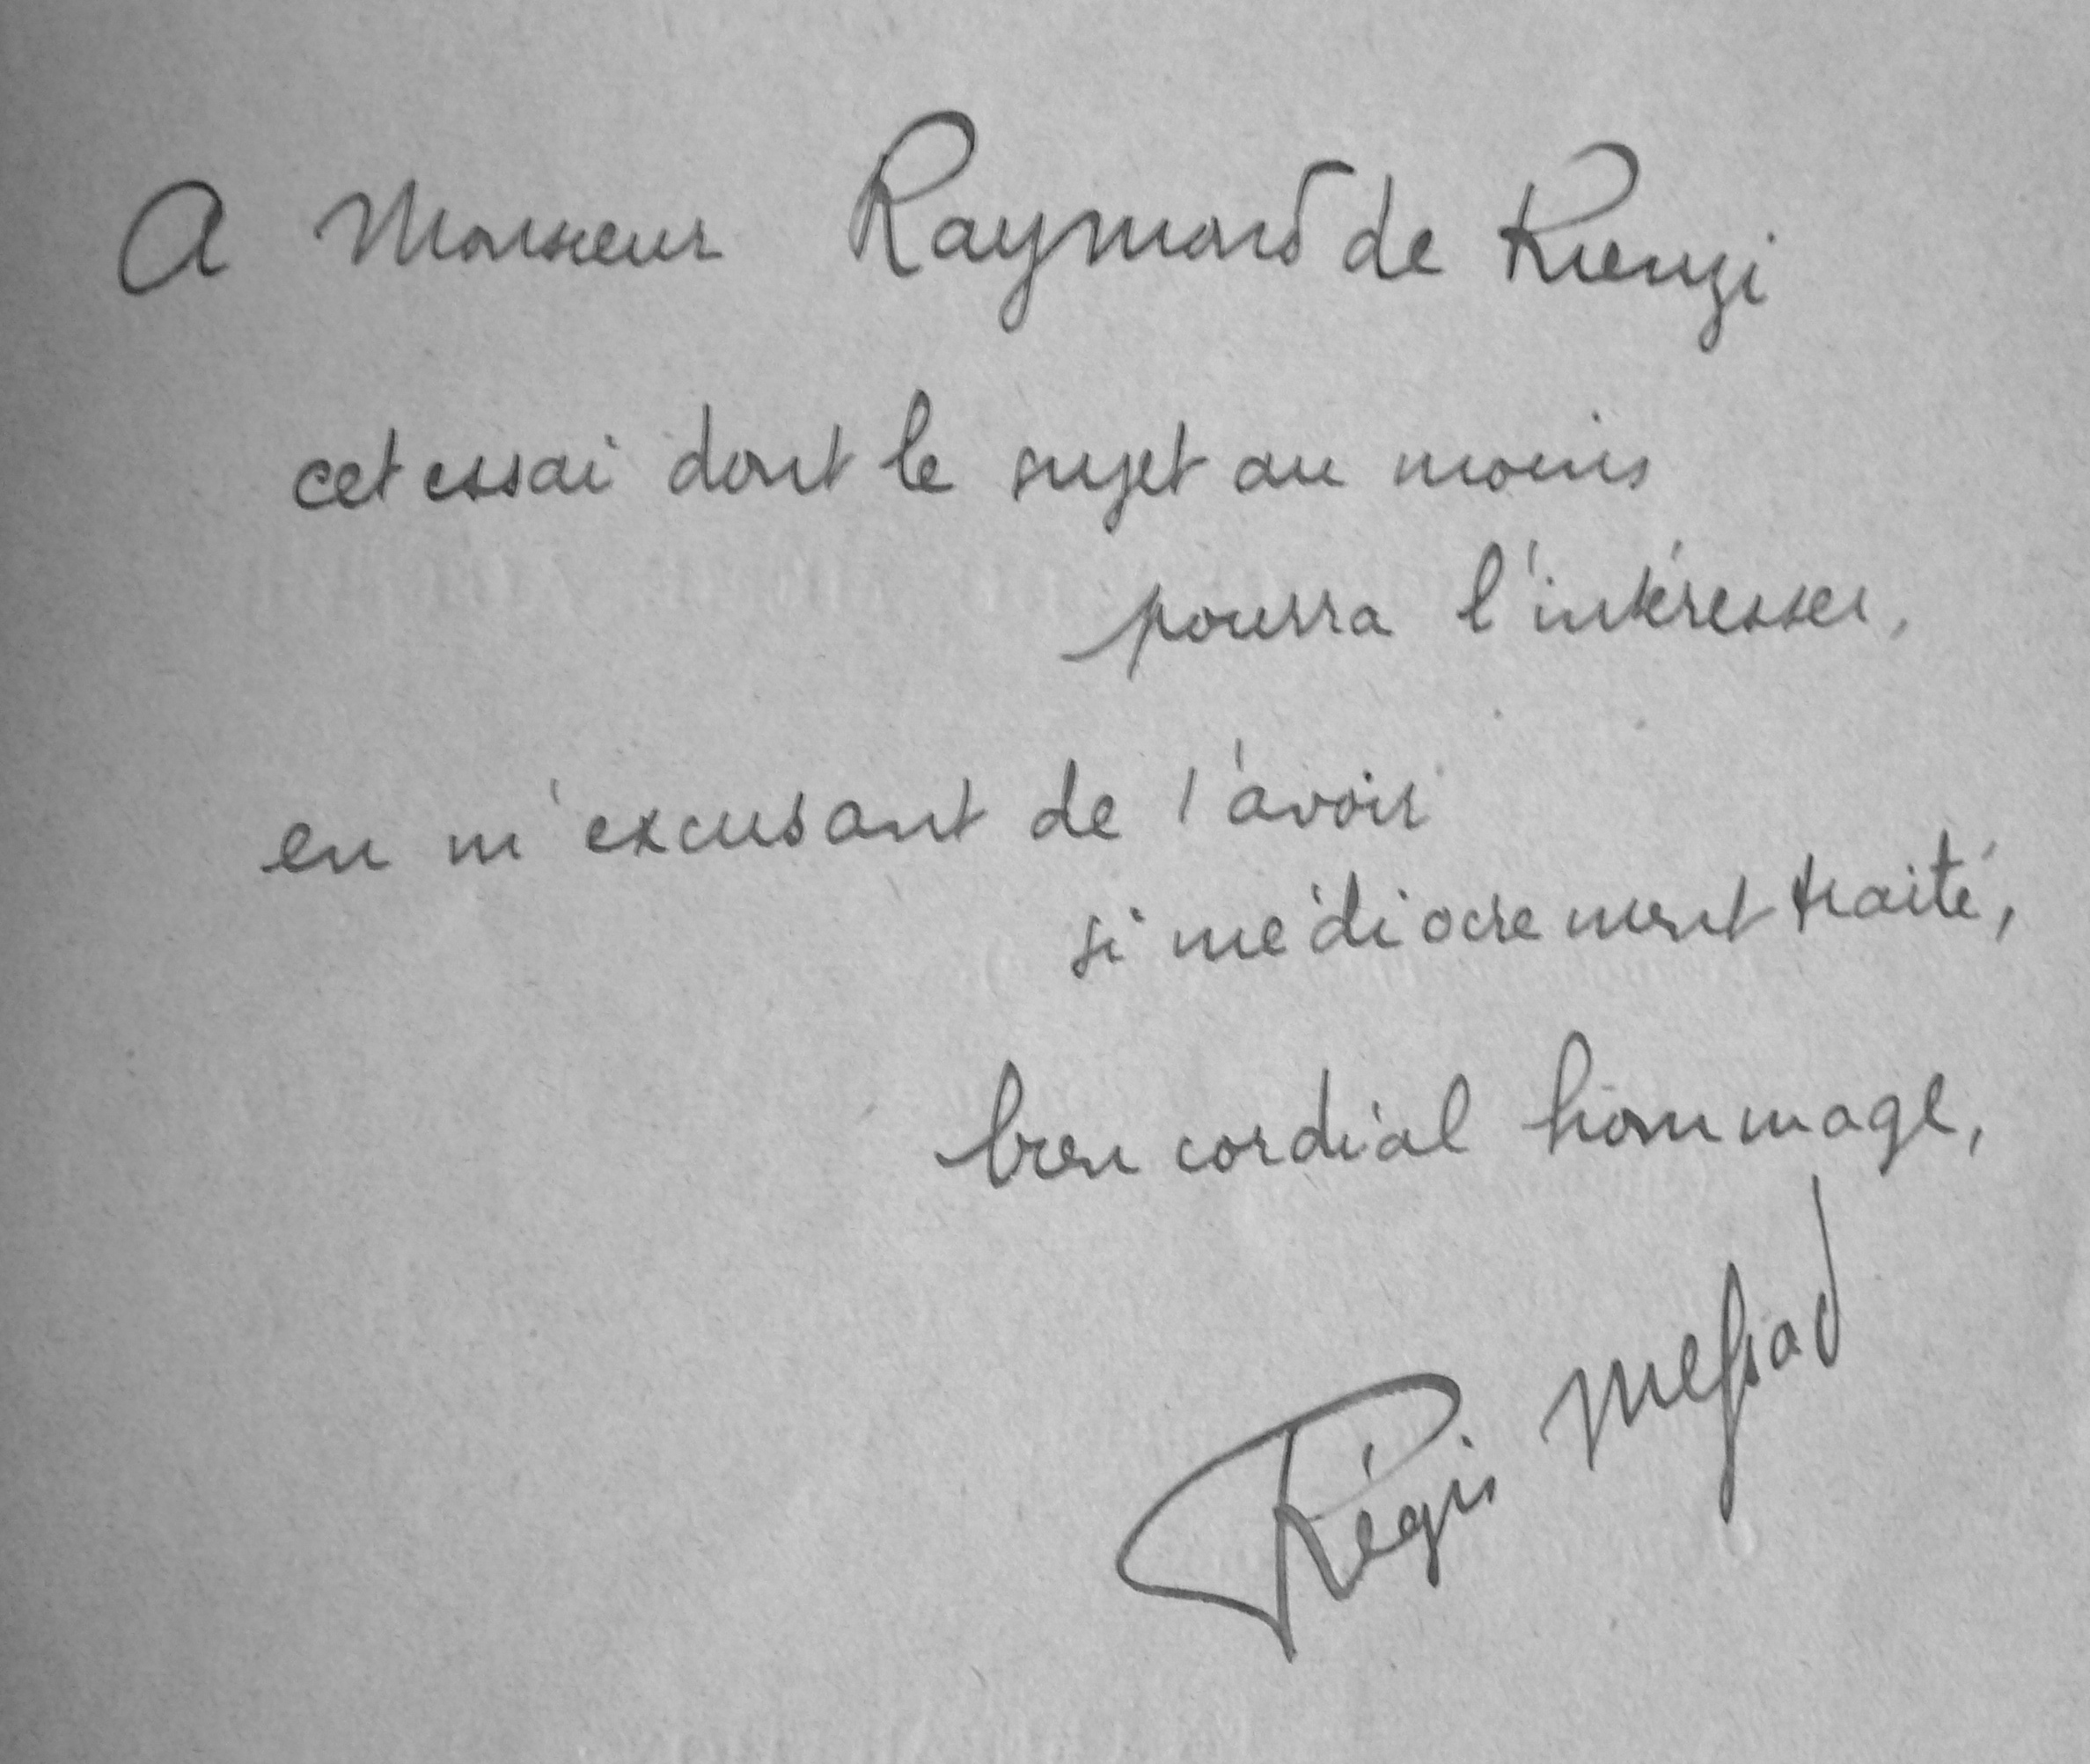 A Monsieur Raymond de Rienzi
cet essai dont le sujet au moins
pourra l'intéresser,
en m'excusant de l'avoir
si médiocrement traité,
bien cordial hommage,
Régis Messad